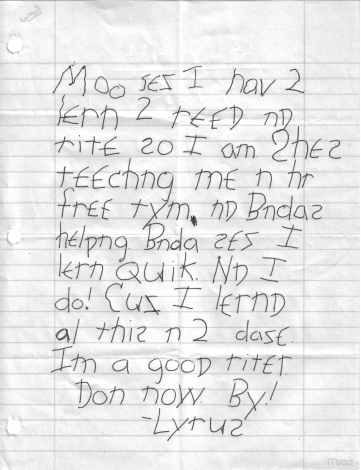 Moo sez I hav 2
lern 2 rEED nD
rite so I am 2hes
tEEchng me n hr
frEE tym. nD Bndas
helpng Bnda sez I
lern Quik. ND I
do! Cuz I lernD
al this n 2 dase.
Im a gooD riter
Don now. By!
-Lyrus